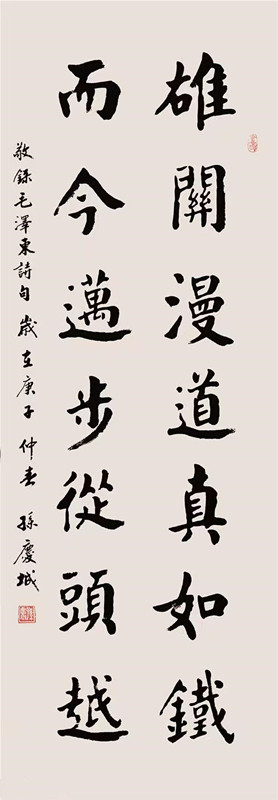 雄關漫道真如鐵
而今邁步從頭越
敬錄毛澤東詩句 歲在庚子仲春 孫慶城